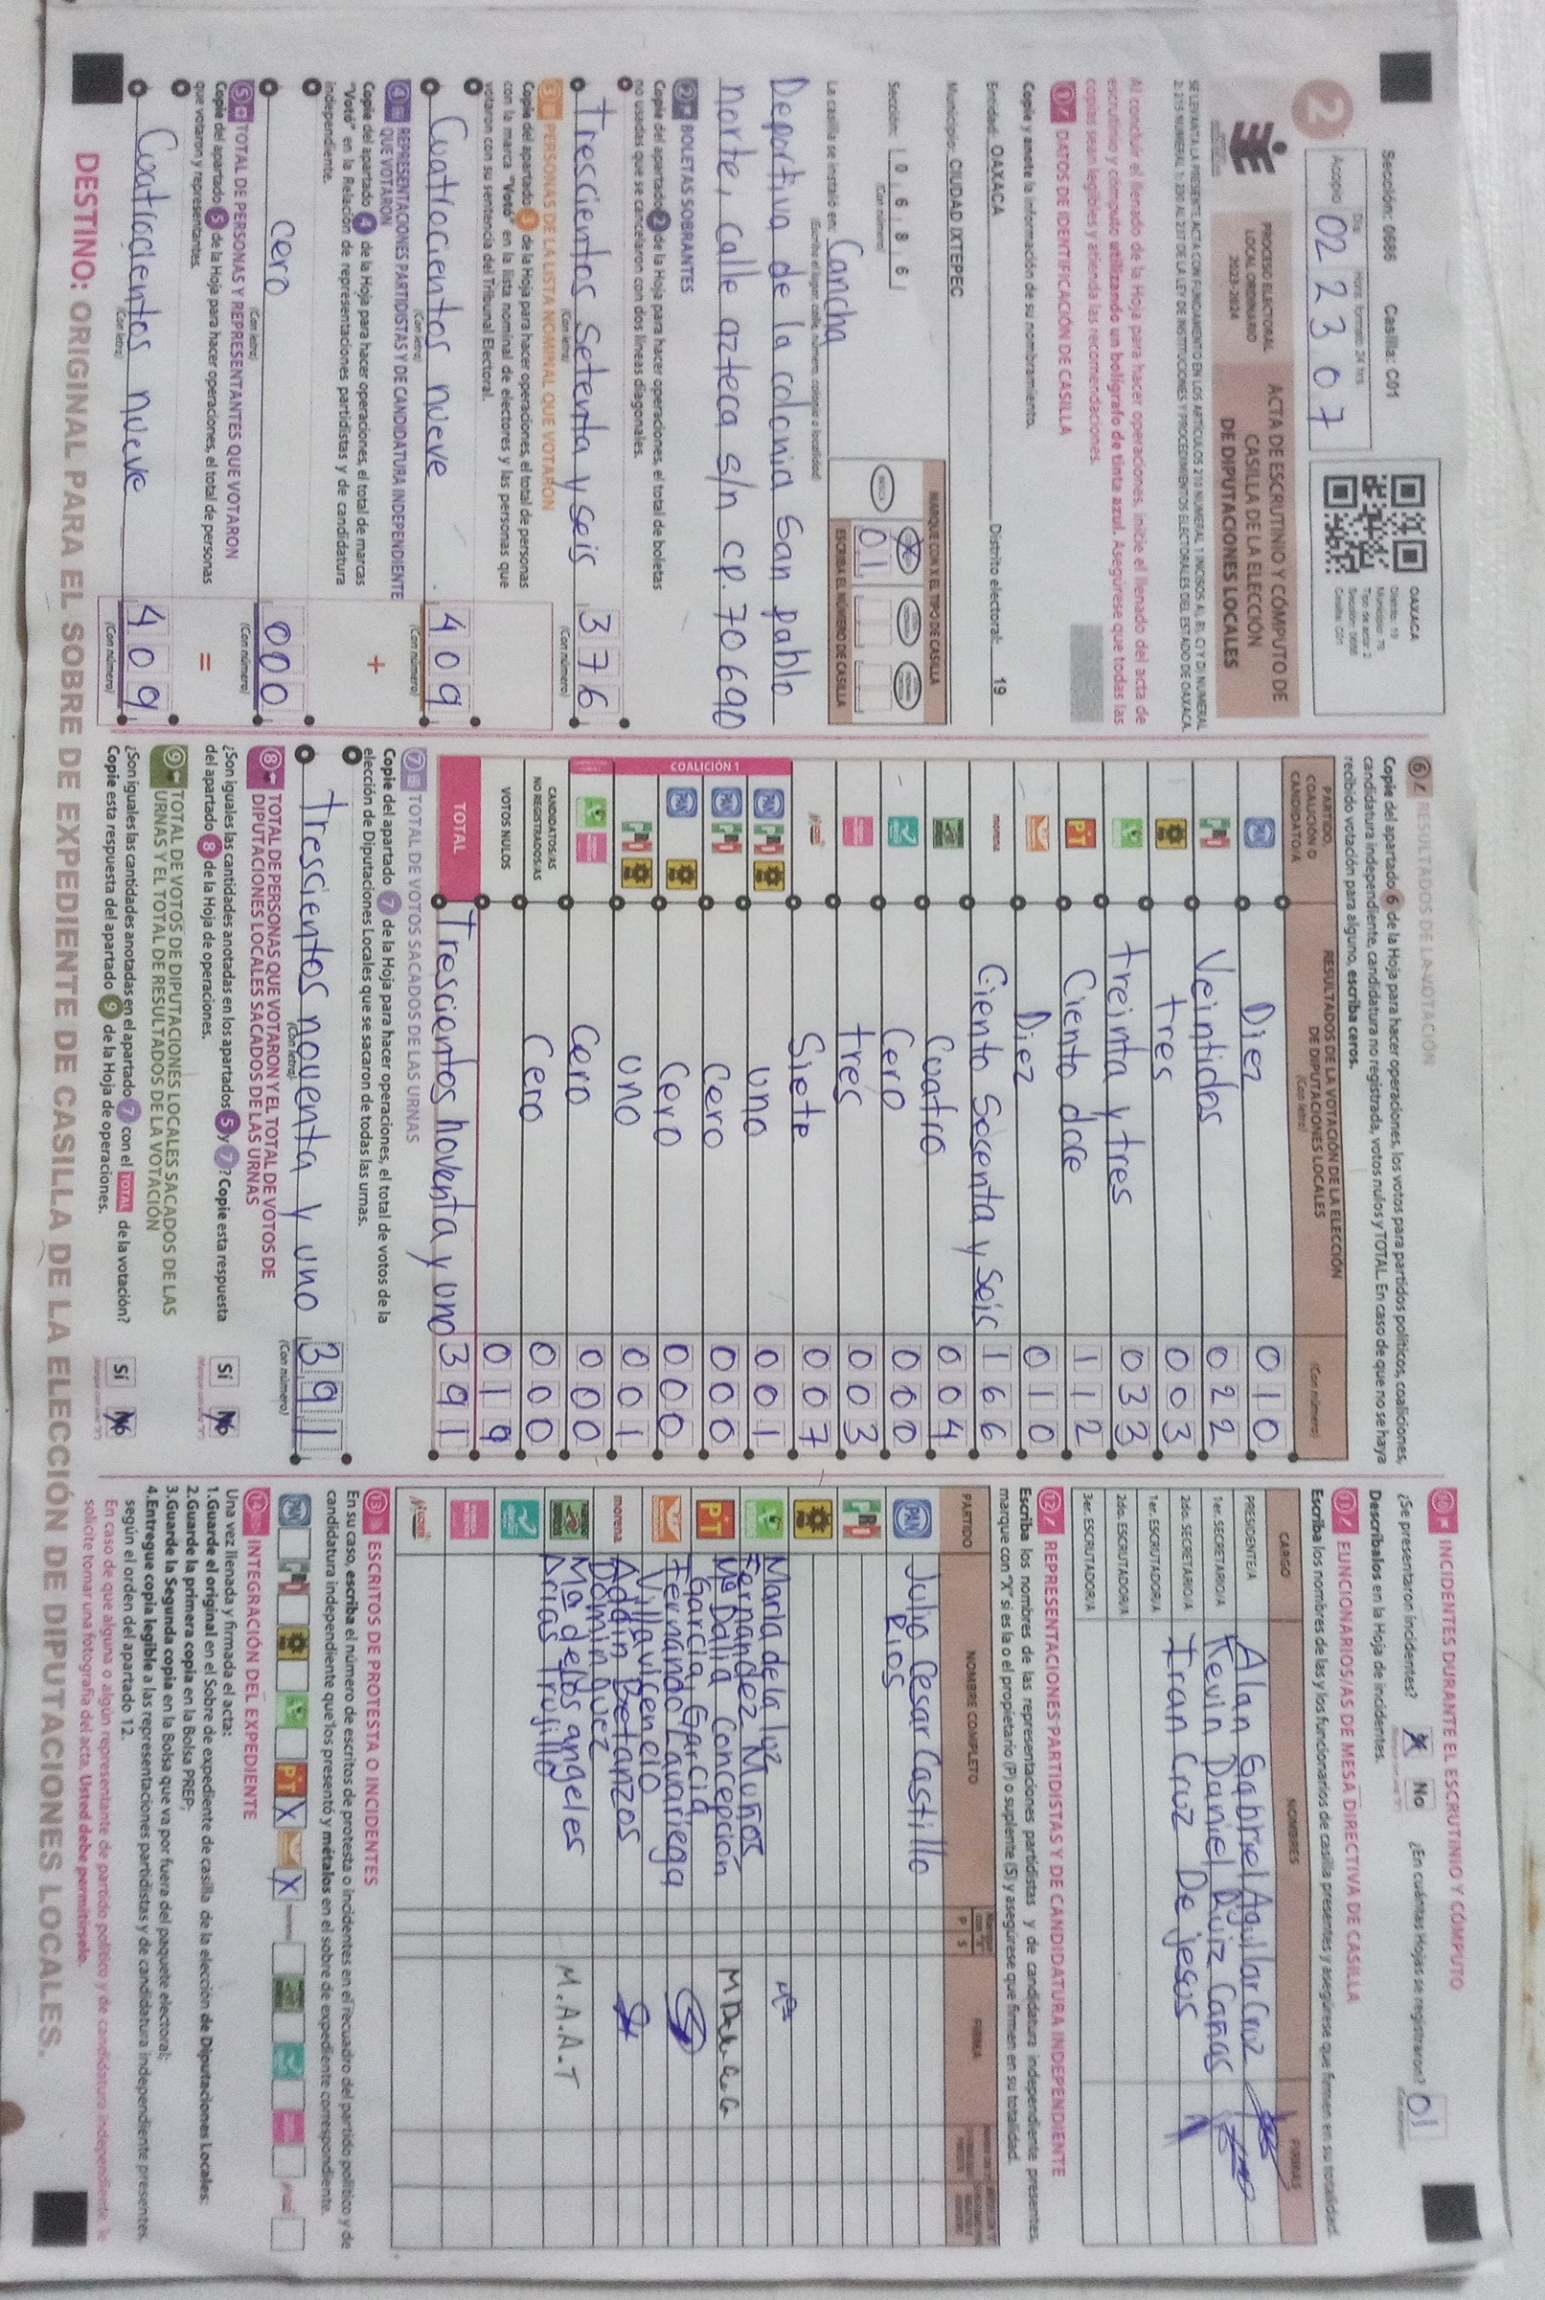 Sección: 0686 Casilla: C01
2
Día Hora: formato 24 hrs.
Acopio 02 23 07
OAXACA
Distrito: 19
Municipio: 75
Tipo de acta: 2
Sección: 0686
Casilla: C01
PROCESO ELECTORAL
LOCAL ORDINARIO
2023-2024
ACTA DE ESCRUTINIO Y CÓMPUTO DE
CASILLA DE LA ELECCIÓN
DE DIPUTACIONES LOCALES
Al concluir el llenado de la Hoja para hacer operaciones, inicie el llenado del acta de
escrutinio y cómputo utilizando un bolígrafo de tinta azul. Asegúrese que todas las
copias sean legibles y atienda las recomendaciones.
1 DATOS DE IDENTIFICACIÓN DE CASILLA
Copie y anote la información de su nombramiento.
Entidad: OAXACA Distrito electoral: 19
Municipio: CIUDAD IXTEPEC
Sección: 0 6 8 6
(Con número)
MARQUE CON X EL TIPO DE CASILLA
BÁSICA
ESCRIBA EL NÚMERO DE CASILLA
01
La casilla se instaló en: Cancha
(Escriba el lugar: calle, número, colonia o localidad)
Deportiva de la colonia San Pablo
norte, calle azteca S/n cp. 70690
2 BOLETAS SOBRANTES
Copie del apartado 2 de la Hoja para hacer operaciones, el total de boletas
no usadas que se cancelaron con dos líneas diagonales.
Trescientos Setenta y seis 376
(Con letra) (Con número)
3 PERSONAS DE LA LISTA NOMINAL QUE VOTARON
Copie del apartado 3 de la Hoja para hacer operaciones, el total de personas
con la marca "Votó" en la lista nominal de electores y las personas que
votaron con su sentencia del Tribunal Electoral.
Cuatrocientos nueve 409
(Con letra) (Con número)
4 REPRESENTACIONES PARTIDISTAS Y DE CANDIDATURA INDEPENDIENTE
QUE VOTARON
Copie del apartado 4 de la Hoja para hacer operaciones, el total de marcas
"Votó" en la Relación de representaciones partidistas y de candidatura
independiente.
+
cero 000
(Con letra) (Con número)
5 TOTAL DE PERSONAS Y REPRESENTANTES QUE VOTARON
Copie del apartado 5 de la Hoja para hacer operaciones, el total de personas
que votaron y representantes.
=
Cuatrocientos nueve 409
(Con letra) (Con número)
6 RESULTADOS DE LA VOTACIÓN
Copie del apartado 6 de la Hoja para hacer operaciones, los votos para partidos políticos, coaliciones,
candidatura independiente, candidatura no registrada, votos nulos y TOTAL. En caso de que no se haya
recibido votación para alguno, escriba ceros.
PARTIDO,
COALICIÓN O
CANDIDATO/A
RESULTADOS DE LA VOTACIÓN DE LA ELECCIÓN
DE DIPUTACIONES LOCALES
(Con letra) (Con número)
PAN Diez 010
PRI Veintidos 022
PRD tres 003
treinta y tres 033
PT Ciento doce 112
Diez 010
morena Ciento Secenta y Seis 166
Cuatro 004
Cero 000
tres 003
Siete 007
COALICIÓN 1
PAN PRI PRD uno 001
PAN PRI Cero 000
PAN PRD Cero 000
PRI PRD uno 001
Cero 000
CANDIDATOS/AS
NO REGISTRADOS/AS Cero 000
VOTOS NULOS 019
TOTAL Trescientos noventa y uno 391
7 TOTAL DE VOTOS SACADOS DE LAS URNAS
Copie del apartado 7 de la Hoja para hacer operaciones, el total de votos de la
elección de Diputaciones Locales que se sacaron de todas las urnas.
Trescientos noventa y uno 391
(Con letra) (Con número)
8 TOTAL DE PERSONAS QUE VOTARON Y EL TOTAL DE VOTOS DE
DIPUTACIONES LOCALES SACADOS DE LAS URNAS
¿Son iguales las cantidades anotadas en los apartados 5 y 7? Copie esta respuesta
del apartado 8 de la Hoja de operaciones.
Sí No
9 TOTAL DE VOTOS DE DIPUTACIONES LOCALES SACADOS DE LAS
URNAS Y EL TOTAL DE RESULTADOS DE LA VOTACIÓN
¿Son iguales las cantidades anotadas en el apartado 7 con el TOTAL de la votación?
Copie esta respuesta del apartado 9 de la Hoja de operaciones.
Sí No
10 INCIDENTES DURANTE EL ESCRUTINIO Y CÓMPUTO
¿Se presentaron incidentes? No ¿En cuántas Hojas se registraron? 01
Descríbalos en la Hoja de incidentes.
11 FUNCIONARIOS/AS DE MESA DIRECTIVA DE CASILLA
Escriba los nombres de las y los funcionarios de casilla presentes y asegúrese que firmen en su totalidad.
CARGO NOMBRES FIRMAS
PRESIDENTE/A Alan Gabriel Aguilar Cruz
1er. SECRETARIO/A Kevin Daniel Ruiz Cañas
2do. SECRETARIO/A Fran Cruz De jesus
1er. ESCRUTADOR/A
2do. ESCRUTADOR/A
3er. ESCRUTADOR/A
12 REPRESENTACIONES PARTIDISTAS Y DE CANDIDATURA INDEPENDIENTE
Escriba los nombres de las representaciones partidistas y de candidatura independiente presentes,
marque con "X" si es la o el propietario (P) o suplente (S) y asegúrese que firmen en su totalidad.
PARTIDO NOMBRE COMPLETO P S FIRMA
PAN Julio Cesar Castillo
Rios
PRI
PRD
Maria de la luz
Fernandez Muños
PT Ma Dalia Concepción
Garcia Garcia
Fernando Lavariega
Villavicencio
morena Addin Betanzos
Dominguez
Ma de los angeles
Arias Trujillo M.A.A.T
13 ESCRITOS DE PROTESTA O INCIDENTES
En su caso, escriba el número de escritos de protesta o incidentes en el recuadro del partido político y de
candidatura independiente que los presentó y métalos en el sobre de expediente correspondiente.
PAN PRI PRD PT X X
14 INTEGRACIÓN DEL EXPEDIENTE
Una vez llenada y firmada el acta:
1.Guarde el original en el Sobre de expediente de casilla de la elección de Diputaciones Locales;
2.Guarde la primera copia en la Bolsa PREP;
3.Guarde la Segunda copia en la Bolsa que va por fuera del paquete electoral;
4.Entregue copia legible a las representaciones partidistas y de candidatura independiente presentes,
según el orden del apartado 12.
En caso de que alguna o algún representante de partido político y de candidatura independiente, le
solicite tomar una fotografía del acta, Usted debe permitírselo.
DESTINO: ORIGINAL PARA EL SOBRE DE EXPEDIENTE DE CASILLA DE LA ELECCIÓN DE DIPUTACIONES LOCALES.